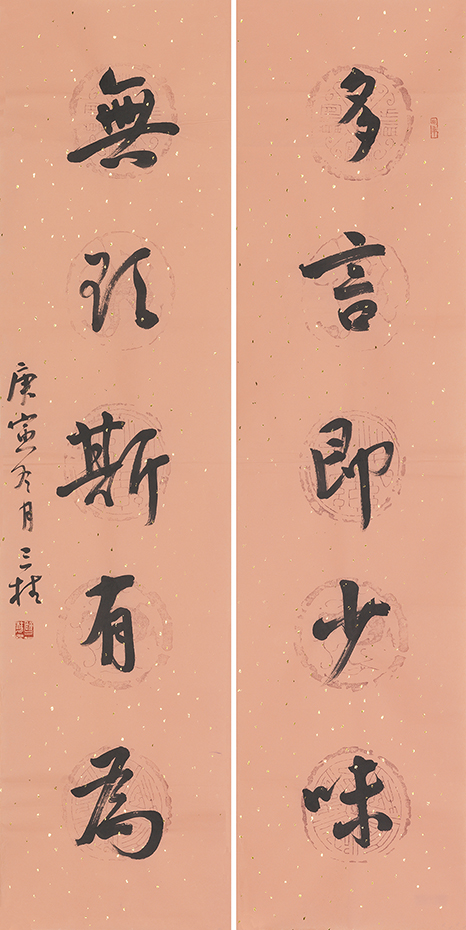 多言即少味
無斯有為
庚寅冬月三